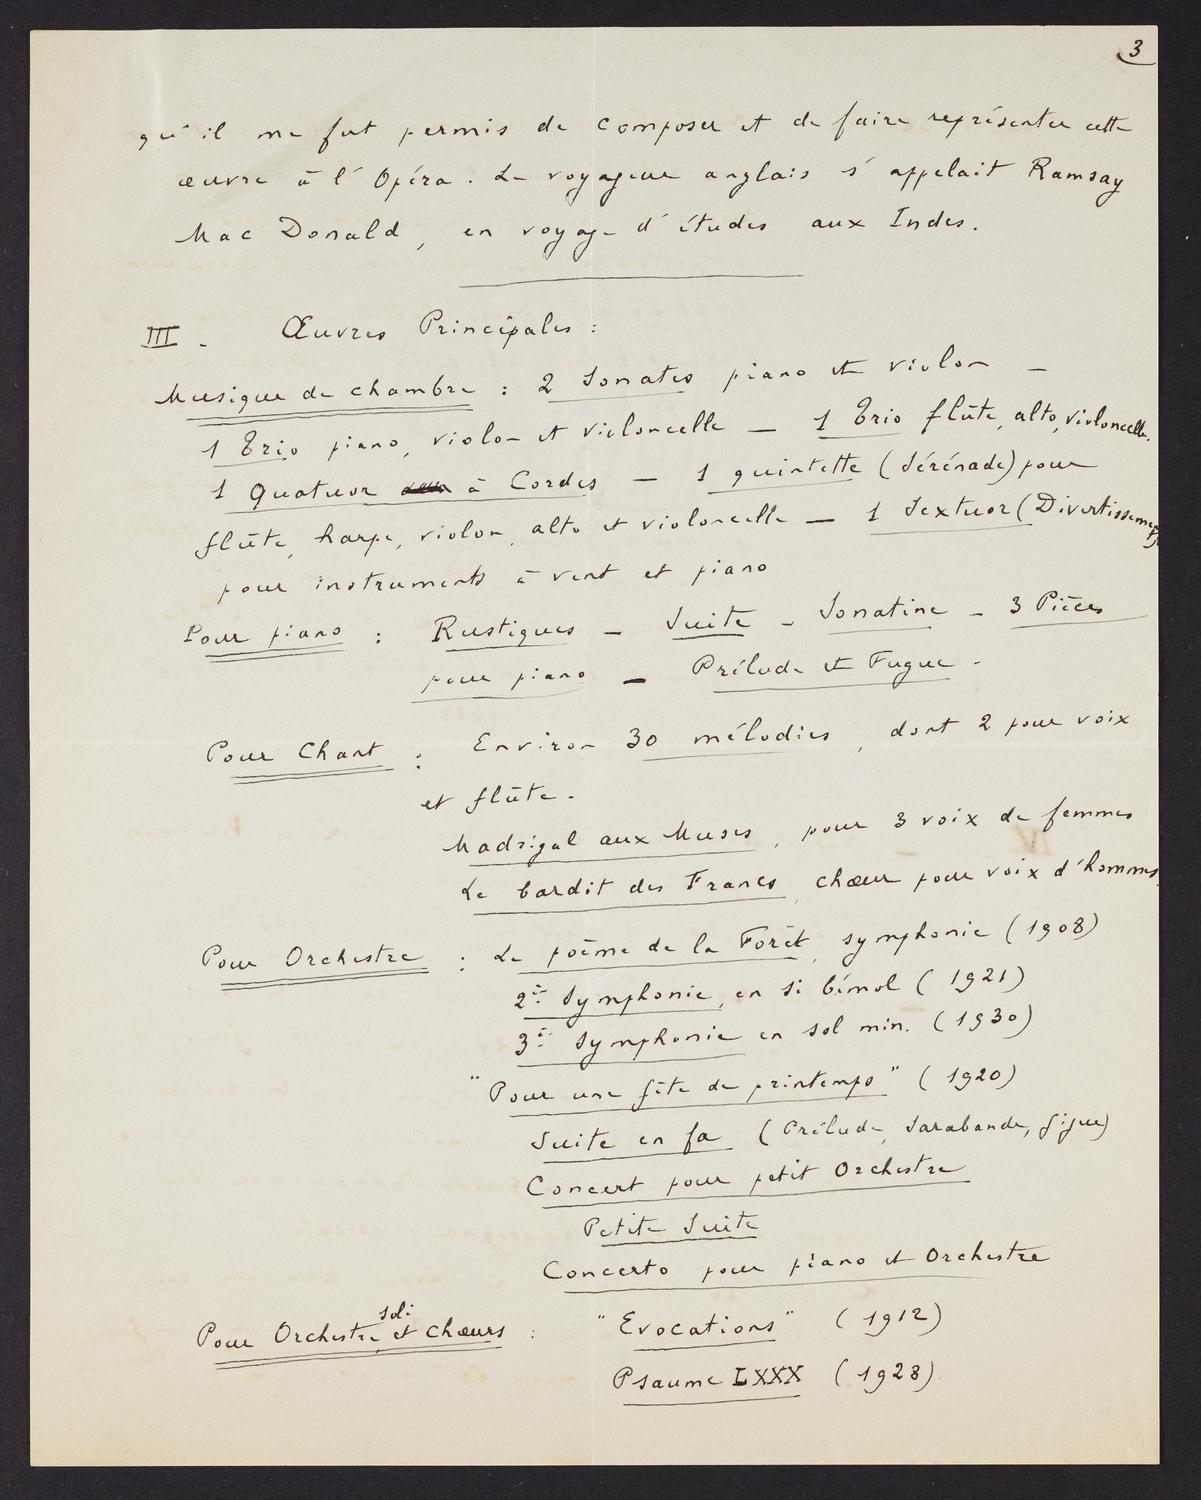 3
qu'il me fut permis de composer et de faire représenter cette
œuvre à l'Opéra. Le voyageur anglais s'appelait Ramsay
Mac Donald, en voyage d'études aux Indes.
III - Œuvres Principales :
Musique de chambre : 2 Sonates piano et violon -
1 Trio piano, violon et violoncelle - 1 Trio flûte, alto, violoncelle.
1 Quatuor à Cordes - 1 quintette (Sérénade) pour
flûte, harpe, violon, alto et violoncelle - 1 Sextuor (Divertissement)
pour instruments à vent et piano
Pour piano : Rustiques - Suite - Sonatine - 3 Pièces
pour piano - Prélude et Fugue -
Pour Chant : Environ 30 mélodies, dont 2 pour voix
et flûte.
Madrigal aux Muses, pour 3 voix de femmes
Le bardit des Francs, chœur pour voix d'hommes.
Pour Orchestre : Le poème de la Forêt, symphonie (1908)
2e Symphonie, en si bémol (1921)
3e Symphonie en sol min. (1930)
"Pour une fête de printemps" (1920)
Suite en fa (Prélude, Sarabande, gigue)
Concert pour petit Orchestre
Petite Suite
Concerto pour piano et Orchestre
Pour Orchestre, soli et Chœurs : "Evocations" (1912)
Psaume LXXX (1928)